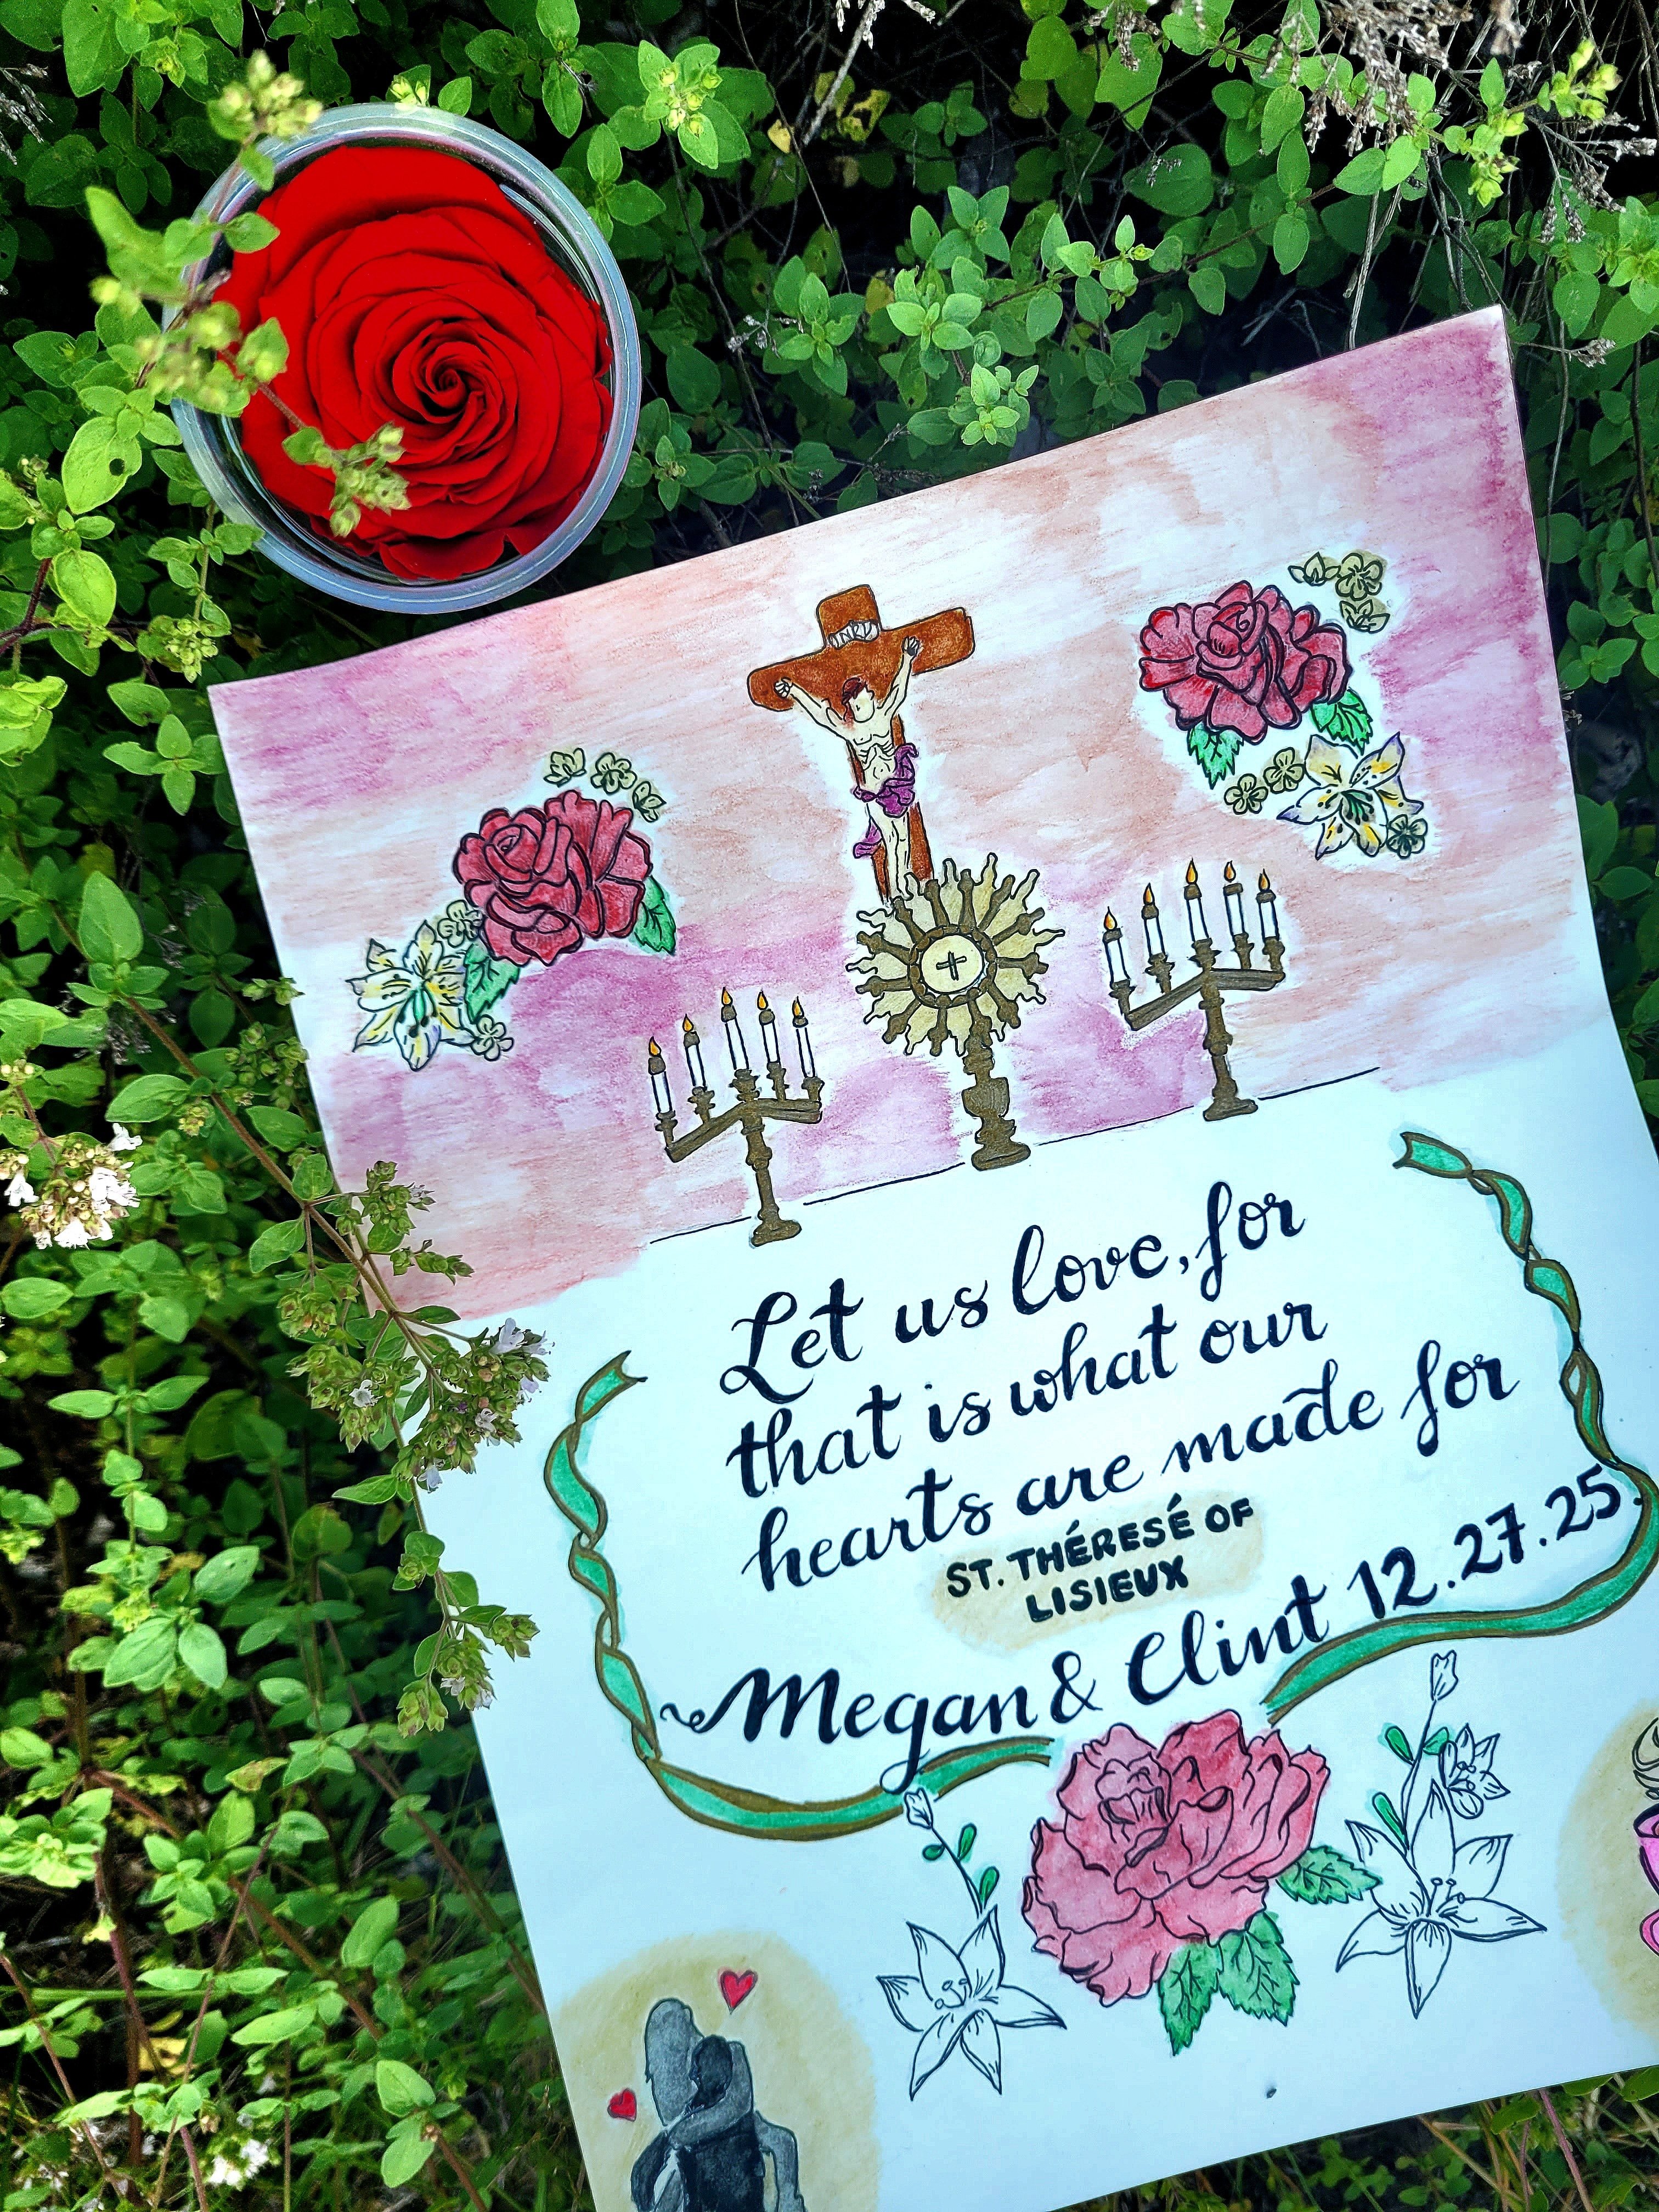 INRI
Let us love, for
that is what our
hearts are made for
ST. THÉRESÉ OF
LISIEUX
Megan & Clint 12.27.25.